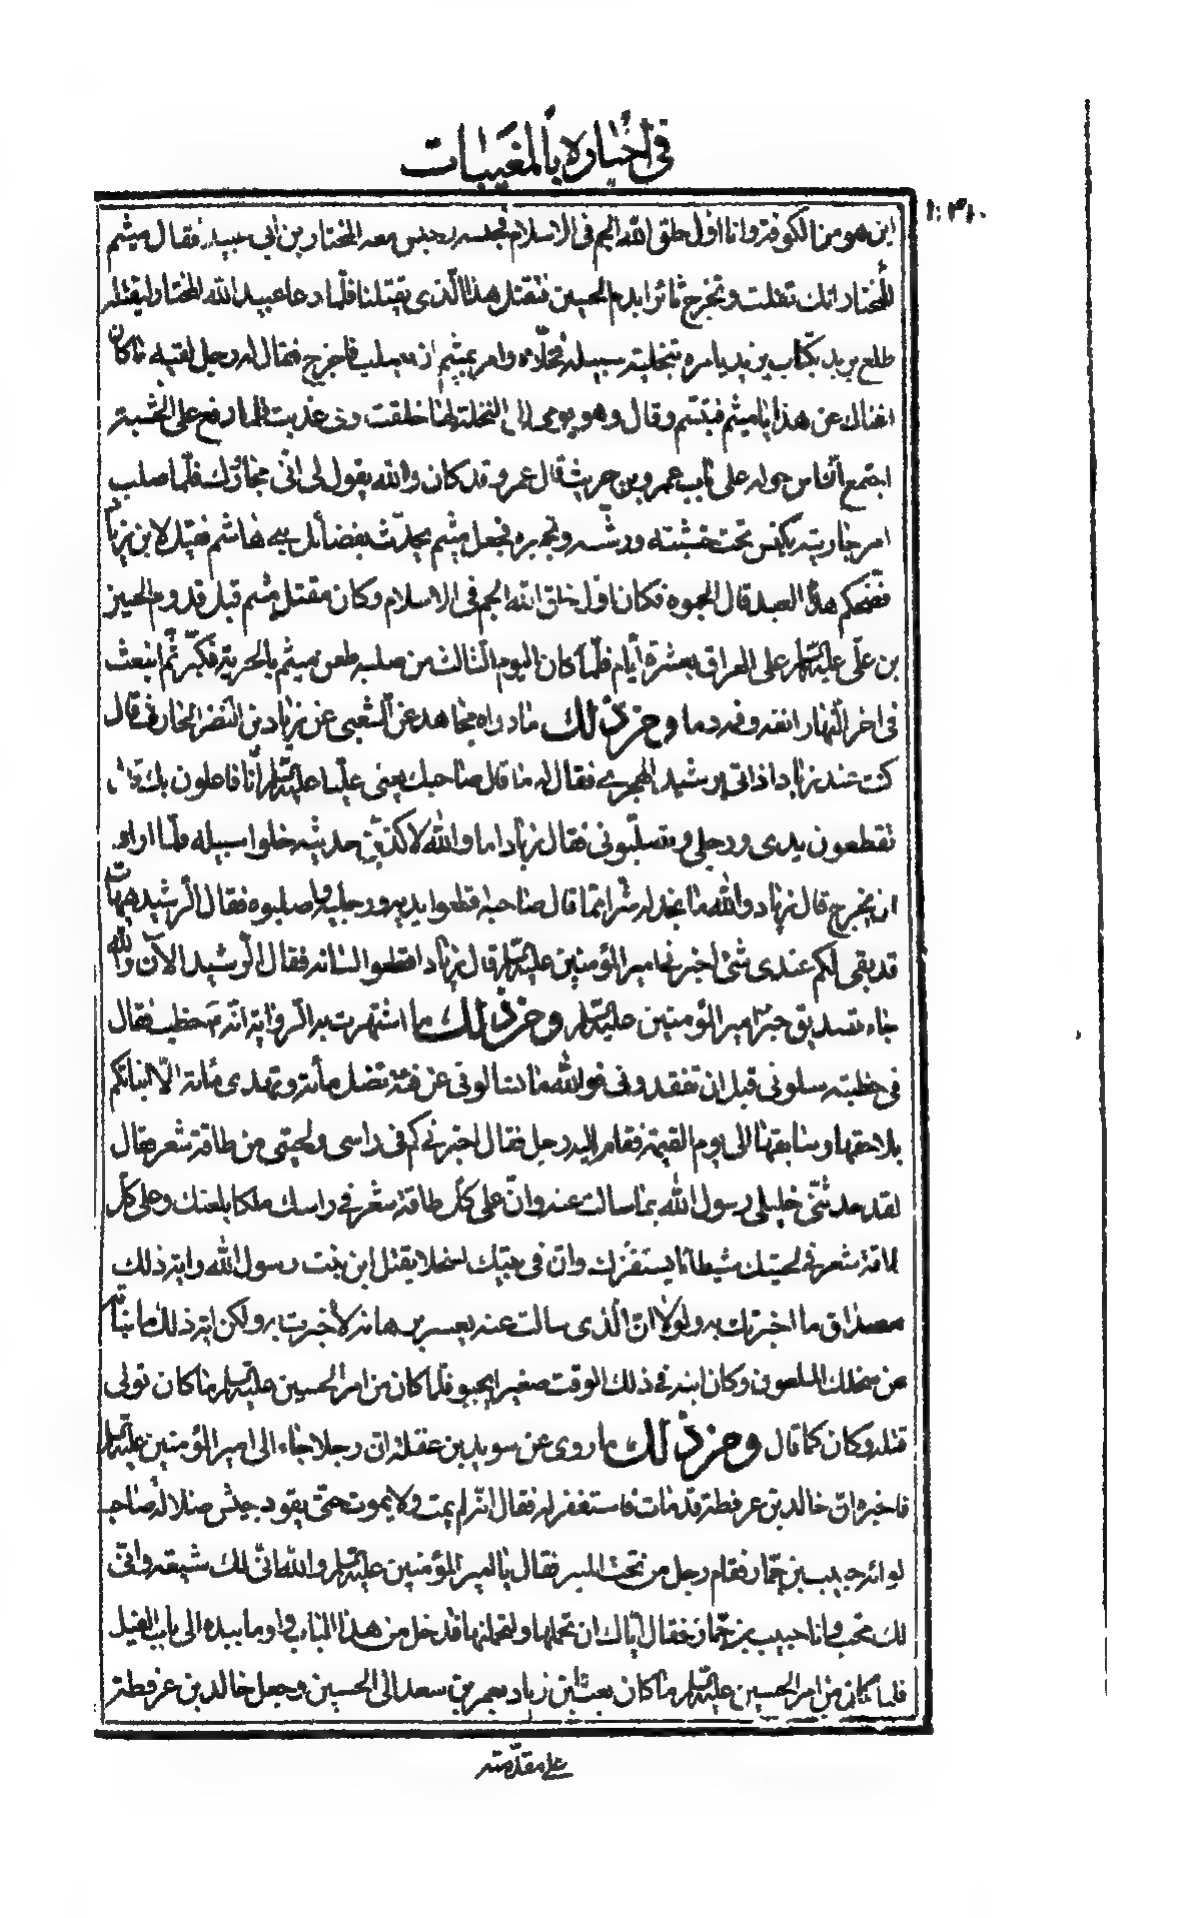 في اخباره بالمغيبات
اين هو من الكوفة وانا اول خلق الله الجم في الاسلام فحبسه وحبس معه المختار بن أبي عبيد فقال ميثم
للمختار انك تفلت وتخرج ثائرا بدم الحسين فتقتل هذا الّذي يقتلنا فلّما دعا عبيد الله المختار ليقتله
طلع بريد بكتاب يزيد يامره بتخلية سبيله فخلّاه وامر بميثم ان يصلب فاخرج فقال له رجل لقيه ما كان
اغناك عن هذا يا ميثم فتبسّم وقال وهو يومي الى النخلة لها خلقت ولى غذيت فلما رفع على الخشبة
اجتمع النّاس حوله على باب عمرو بن حريث قال عمرو قد كان والله يقول لى انّى مجاورك فلّما صلب
امر جاريته بكنس تحت خشبته ورشّه وتجميره فجعل ميثم يحدّث بفضائل بنى هاشم فقيل لابن زياد
قد فضحكم هذا العبد قال الجموه فكان اوّل خلق الله الجم في الاسلام وكان مقتل ميثم قبل قدوم الحسين
بن علّي عليه السّلام على العراق بعشرة أيّام فلّما كان اليوم الثالث من صلبه طعن ميثم بالحربة فكبّر ثّم انبعث
في اخر النّهار انفه وفمه دما ومن ذلك ما رواه مجاهد عن الشّعبي عن زياد بن النّضر الحارثي قال
كنت عند زياد اذ اتي برشيد الهجري فقال له ما قال صاحبك يعنى علّيا عليه السّلام أنا فاعلون بك قال
تقطعون يدى ورجلي وتصلّبوني فقال زياد اما والله لاكذّبّن حديثه خلوا سبيله فلّما اراد
ان يخرج قال زياد والله ما نجد له شّرا مّما قال صاحبه اقطعوا يديه ورجليه واصلبوه فقال الرّشيد هيهات
قد بقى لكم عندى شئ اخبرنى امير المؤمنين عليه السّلام قال زياد اقطعوا لسانه فقال الرّشيد الآن والله
جاء تصديق خبر امير المؤمنين عليه السّلام ومن ذلك ما اشتهرت به الرّواية انّه ع خطب فقال
في خطبته سلونى قبل ان تفقدونى فوالله ما تسالونى عن فئة تضل مأئة وتهدى مأئة الّا انباتكم
بناعقها وسائقها الى يوم القيمة فقام اليه رجل فقال اخبرني كم فى راسى ولحيتى من طاقة شعر فقال
لقد حدثّنى خليلى رسول الله بما سالت عنه وانّ على كلّ طاقة شعر في راسك ملكا يلعنك وعلى كلّ
طاقة شعر في لحيتك شيطانا يستفزّك وانّ فى بيتك لسخلا يقتل ابن بنت رسول الله واية ذلك
مصداق ما اخبرتك به ولولا انّ الّذى سالت عنه يعسر برهانه لاخبرت به ولكن اية ذلك ما نباتك به
من سخلك الملعون وكان ابنه في ذلك الوقت صغيرا يحبو فلّما كان من امر الحسين عليه السّلام ما كان تولى
قتله وكان كما قال ومن ذلك ما روى عن سويد بن غفلة انّ رجلا جاء الى امير المؤمنين عليه السّلام
فاخبره انّ خالد بن عرفطة قد مات فاستغفر له فقال انّه لم يمت ولا يموت حتّى يقود جيش ضلالة صاحب
لوائه حبيب بن جمّاز فقام رجل من تحت المنبر فقال يا امير المؤمنين عليه السّلام والله انّي لك شيعة وانّي
لك محّب وانا حبيب بن جمّاز فقال ايّاك ان تحملها ولتحملنها فتدخل من هذا الباب واوما بيده الى باب الفيل
فلما كان من امر الحسين عليه السّلام ما كان بعث ابن زياد بعمر بن سعد الى الحسين وجعل خالد بن عرفطة
على مقدّمته